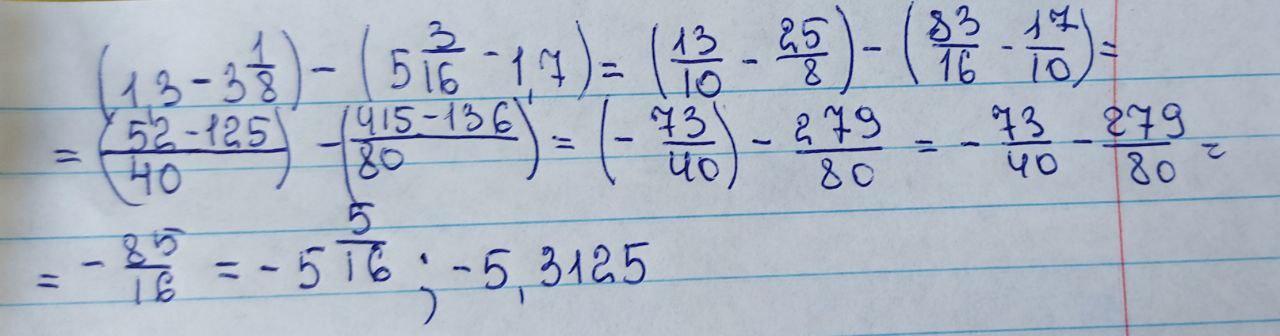 (1,3 - 3 1/8) - (5 3/16 - 1,7) = (13/10 - 25/8) - (83/16 - 17/10) =
= ((52 - 125)/40) - ((415 - 136)/80) = (- 73/40) - 279/80 = - 73/40 - 279/80 =
= - 85/16 = - 5 5/16 ; - 5,3125